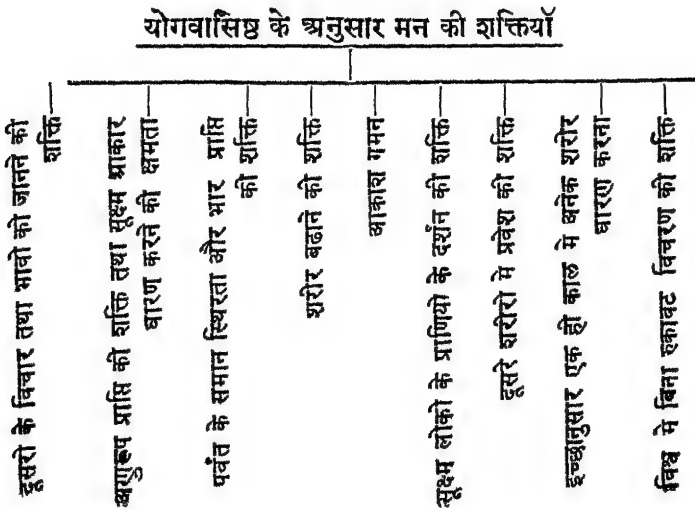 योगवासिष्ठ के अनुसार मन की शक्तियाँ
दूसरो के विचार तथा भावो को जानने की
शक्ति
अणुरूप प्राप्ति की शक्ति तथा सूक्ष्म आकार
धारण करने की क्षमता
पर्वत के समान स्थिरता और भार प्राप्ति
की शक्ति
शरीर बढाने की शक्ति
आकाश गमन
सूक्ष्म लोको के प्राणियो के दर्शन की शक्ति
दूसरे शरीरो मे प्रवेश की शक्ति
इच्छानुसार एक ही काल मे अनेक शरीर
धारण करना
विश्व मे बिना रुकावट विचरण की शक्ति